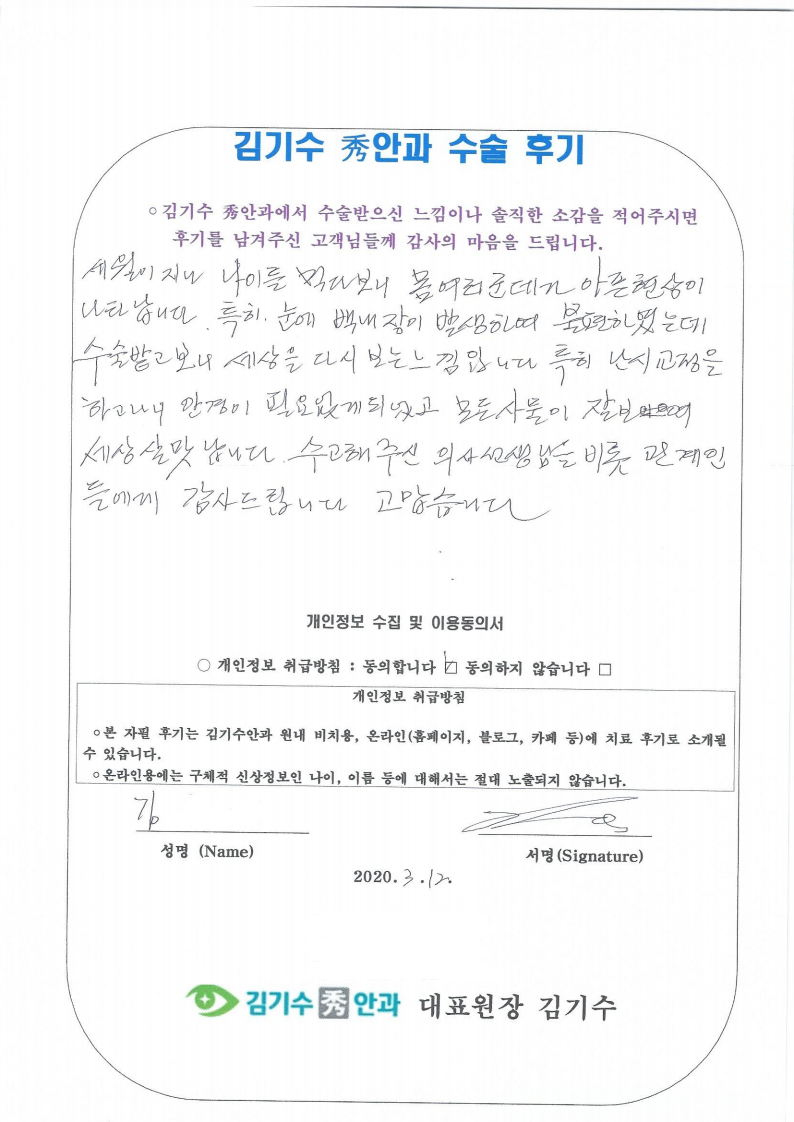 김기수 秀안과 수술 후기
○김기수 秀안과에서 수술받으신 느낌이나 솔직한 소감을 적어주시면
후기를 남겨주신 고객님들께 감사의 마음을 드립니다.
세월이 지나 나이를 먹다보니 몸 여러군데가 아픈현상이
나타납니다. 특히. 눈에 백내장이 발생하여 불편하였는데
수술받고보니 세상을 다시 보는느낌입니다 특히 난시교정을
하고나니 안경이 필요없게되었고 모든사물이 잘보
세상살맛 납니다. 수고해주신 의사선생님을 비롯 관계인
들에게 감사드립니다 고맙습니다
개인정보 수집 및 이용동의서
○ 개인정보 취급방침 : 동의합니다 ☑ 동의하지 않습니다 □
개인정보 취급방침
○본 자필 후기는 김기수안과 원내 비치용, 온라인(홈페이지, 블로그, 카페 등)에 치료 후기로 소개될
수 있습니다.
○온라인용에는 구체적 신상정보인 나이, 이름 등에 대해서는 절대 노출되지 않습니다.
성명 (Name)
서명(Signature)
2020. 3 .12.
김기수 秀 안과 대표원장 김기수